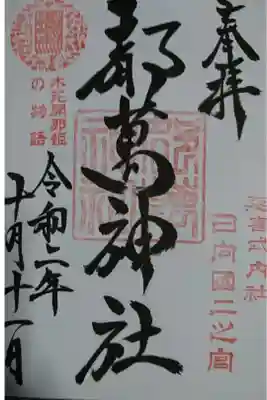 奉拝
延喜式内社
日向國二之宮
都萬神社
木花開耶姫
の物語
令和二年
十月十一日